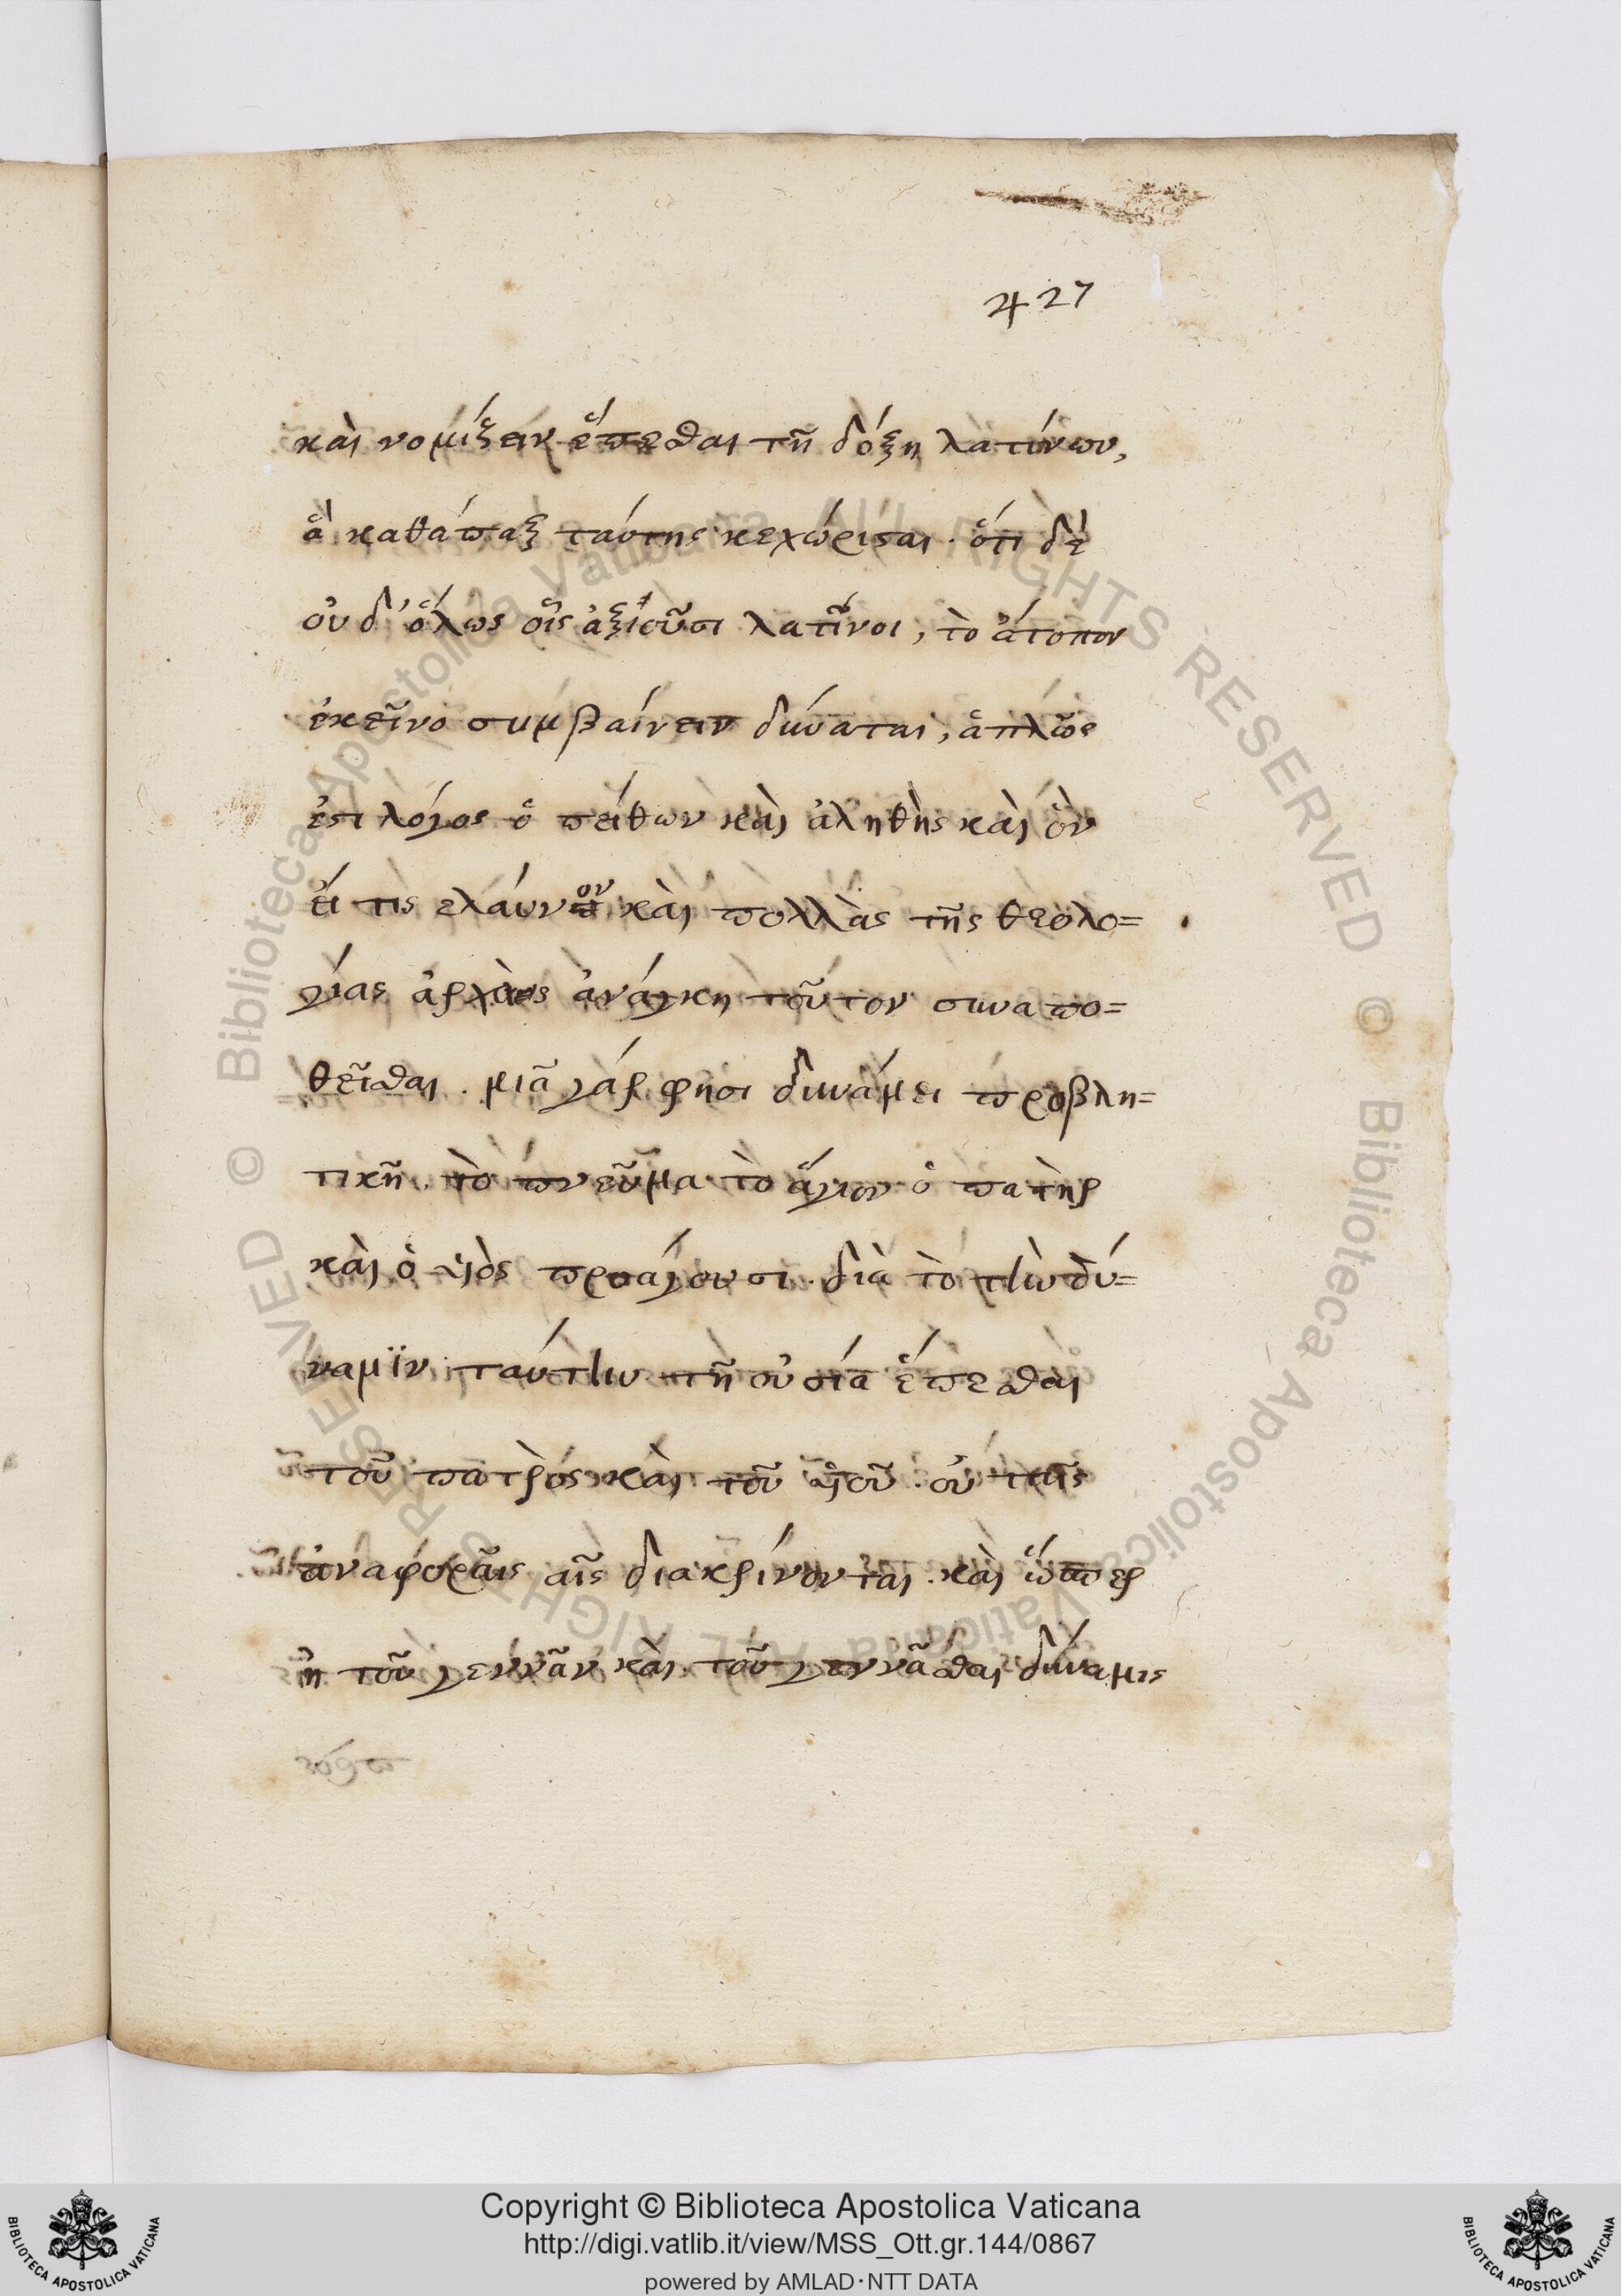 427
καὶ νομίζειν ἕπεσθαι τῇ δόξῃ λατίνων,
ἃ καθάπαξ ταύτης κεχώρισται. ὅτι δὲ
οὐδ' ὅλως οἷς ἀξιοῦσι λατῖνοι, τὸ ἄτοπον
ἐκεῖνο συμβαίνειν δύναται, ἁπλῶς
ἐστι λόγος ὁ πείθων καὶ ἀληθὴς καὶ ὃν
εἴ τις καὶ πολλὰς τῆς θεολο=
γίας ἀρχὰς ἀνάγκη τοῦτον συναπο=
θεῖσθαι. μιᾶ γάρ φησι δυνάμει προβλη=
τικῆ τὸ πνεῦμα τὸ ἅγιον ὁ πατὴρ
καὶ ὁ υἱὸς προάγουσι. διὰ τὸ τὴν δύ=
ναμϊν ταύτην τῆ οὐσία ἕπεσθαι
τοῦ πατρὸς καὶ τοῦ υἱοῦ. οὐ ταῖς
ἀναφοραῖς αἷς διακρίνονται. καὶ ὥσπερ
ἡ τοῦ γεννᾶν καὶ τοῦ γεννᾶσθαι δύναμις
© Biblioteca Apostolica Vaticana ALL RIGHTS RESERVED © Biblioteca Apostolica Vaticana ALL RIGHTS RESERVED
Copyright © Biblioteca Apostolica Vaticana
http://digi.vatlib.it/view/MSS_Ott.gr.144/0867
powered by AMLAD·NTT DATA
BIBLIOTECA APOSTOLICA VATICANA
BIBLIOTECA APOSTOLICA VATICANA